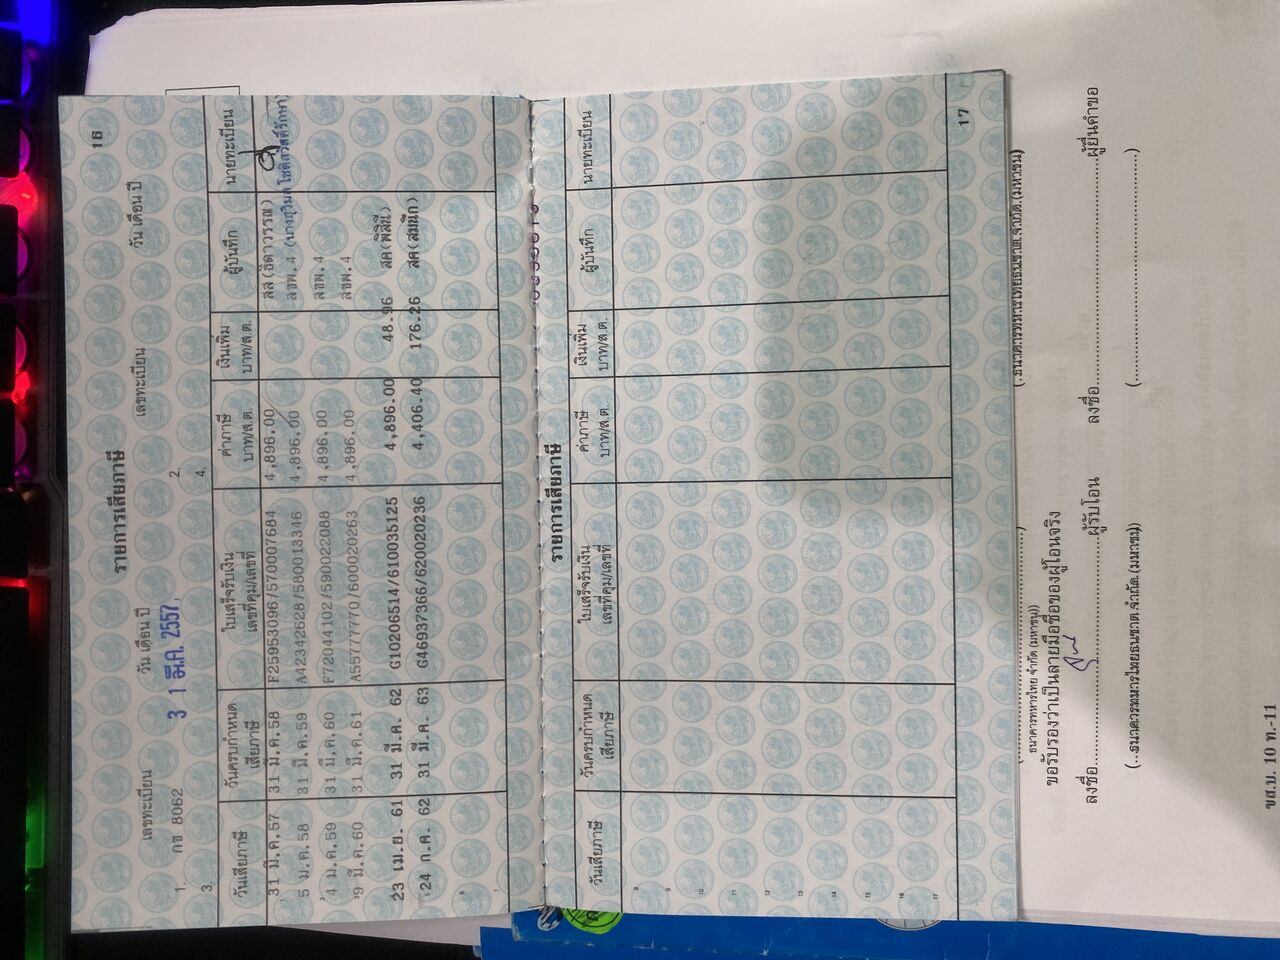 16
รายการเสียภาษี
เลขทะเบียน วัน เดือน ปี เลขทะเบียน วัน เดือน ปี
1. กช 8062 3 1 มี.ค. 2557 2.
3. 4.
วันเสียภาษี วันครบกำหนดเสียภาษี ใบเสร็จรับเงิน เลขที่คุม/เลขที่ ค่าภาษี บาท/ส.ต. เงินเพิ่ม บาท/ส.ต. ผู้บันทึก นายทะเบียน
31 มี.ค.57 31 มี.ค.58 F25953096/570007684 4,896.00 สส(ธิดาวรรณ)
5 ม.ค.58 31 มี.ค.59 A42342628/580018346 4,896.00 สขพ.4
4 ม.ค.59 31 มี.ค.60 F72044102/590022088 4,896.00 สขพ.4
9 มี.ค.60 31 มี.ค.61 A55777770/600020263 4,896.00 สขพ.4
23 เม.ย. 61 31 มี.ค. 62 G10206514/610035125 4,896.00 48.96 สค(พิสินี)
24 ก.ค. 62 31 มี.ค. 63 G46937366/620020236 4,406.40 176.26 สค(สมนึก)
6
7
รายการเสียภาษี
วันเสียภาษี วันครบกำหนดเสียภาษี ใบเสร็จรับเงิน เลขที่คุม/เลขที่ ค่าภาษี บาท/ส.ต. เงินเพิ่ม บาท/ส.ต. ผู้บันทึก นายทะเบียน
8
9
10
11
12
13
14
15
16
17
17
(.ธนาคารทหารไทยธนชาต.จำกัด.(มหาชน)
( ธนาคารทหารไทย จำกัด (มหาชน))
ขอรับรองว่าเป็นลายมือชื่อของผู้โอนจริง
ลงชื่อ ผู้รับโอน ลงชื่อ ผู้ยื่นคำขอ
(..ธนาคารทหารไทยธนชาต.จำกัด.(มหาชน) ( )
ขส.บ. 10 ท.-11